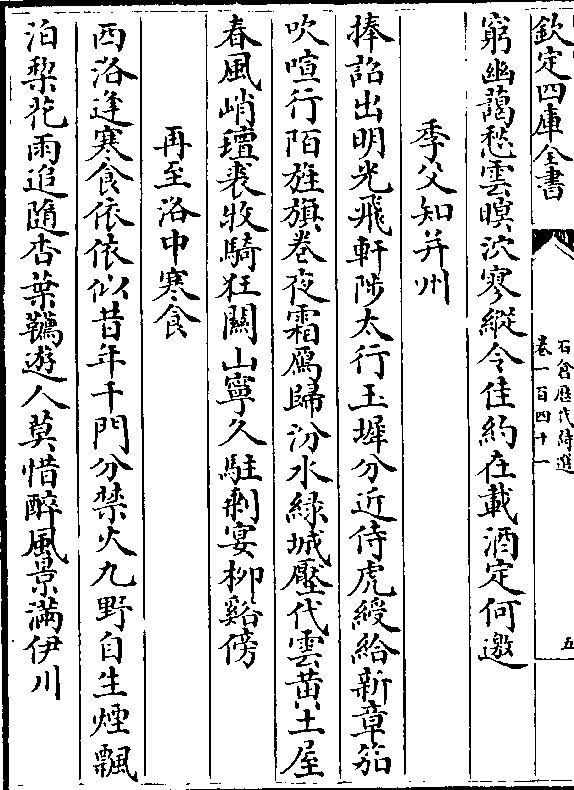 欽定四庫全書
石倉歷代詩選
卷一百四十一
五
窮幽藹愁雲暝泬寥縱令佳約在載酒定何邀
季父知并州
捧詔出明光飛軒陟太行玉墀分近侍虎綬給新章笳
吹喧行陌旌旗卷夜霜鴈歸汾水綠城壓代雲黃土屋
春風峭氊裘牧騎狂關山寧久駐剩宴柳谿傍
再至洛中寒食
西洛逢寒食依依似昔年千門分禁火九野自生煙飄
泊梨花雨追隨杏葉韉遊人莫惜醉風景滿伊川